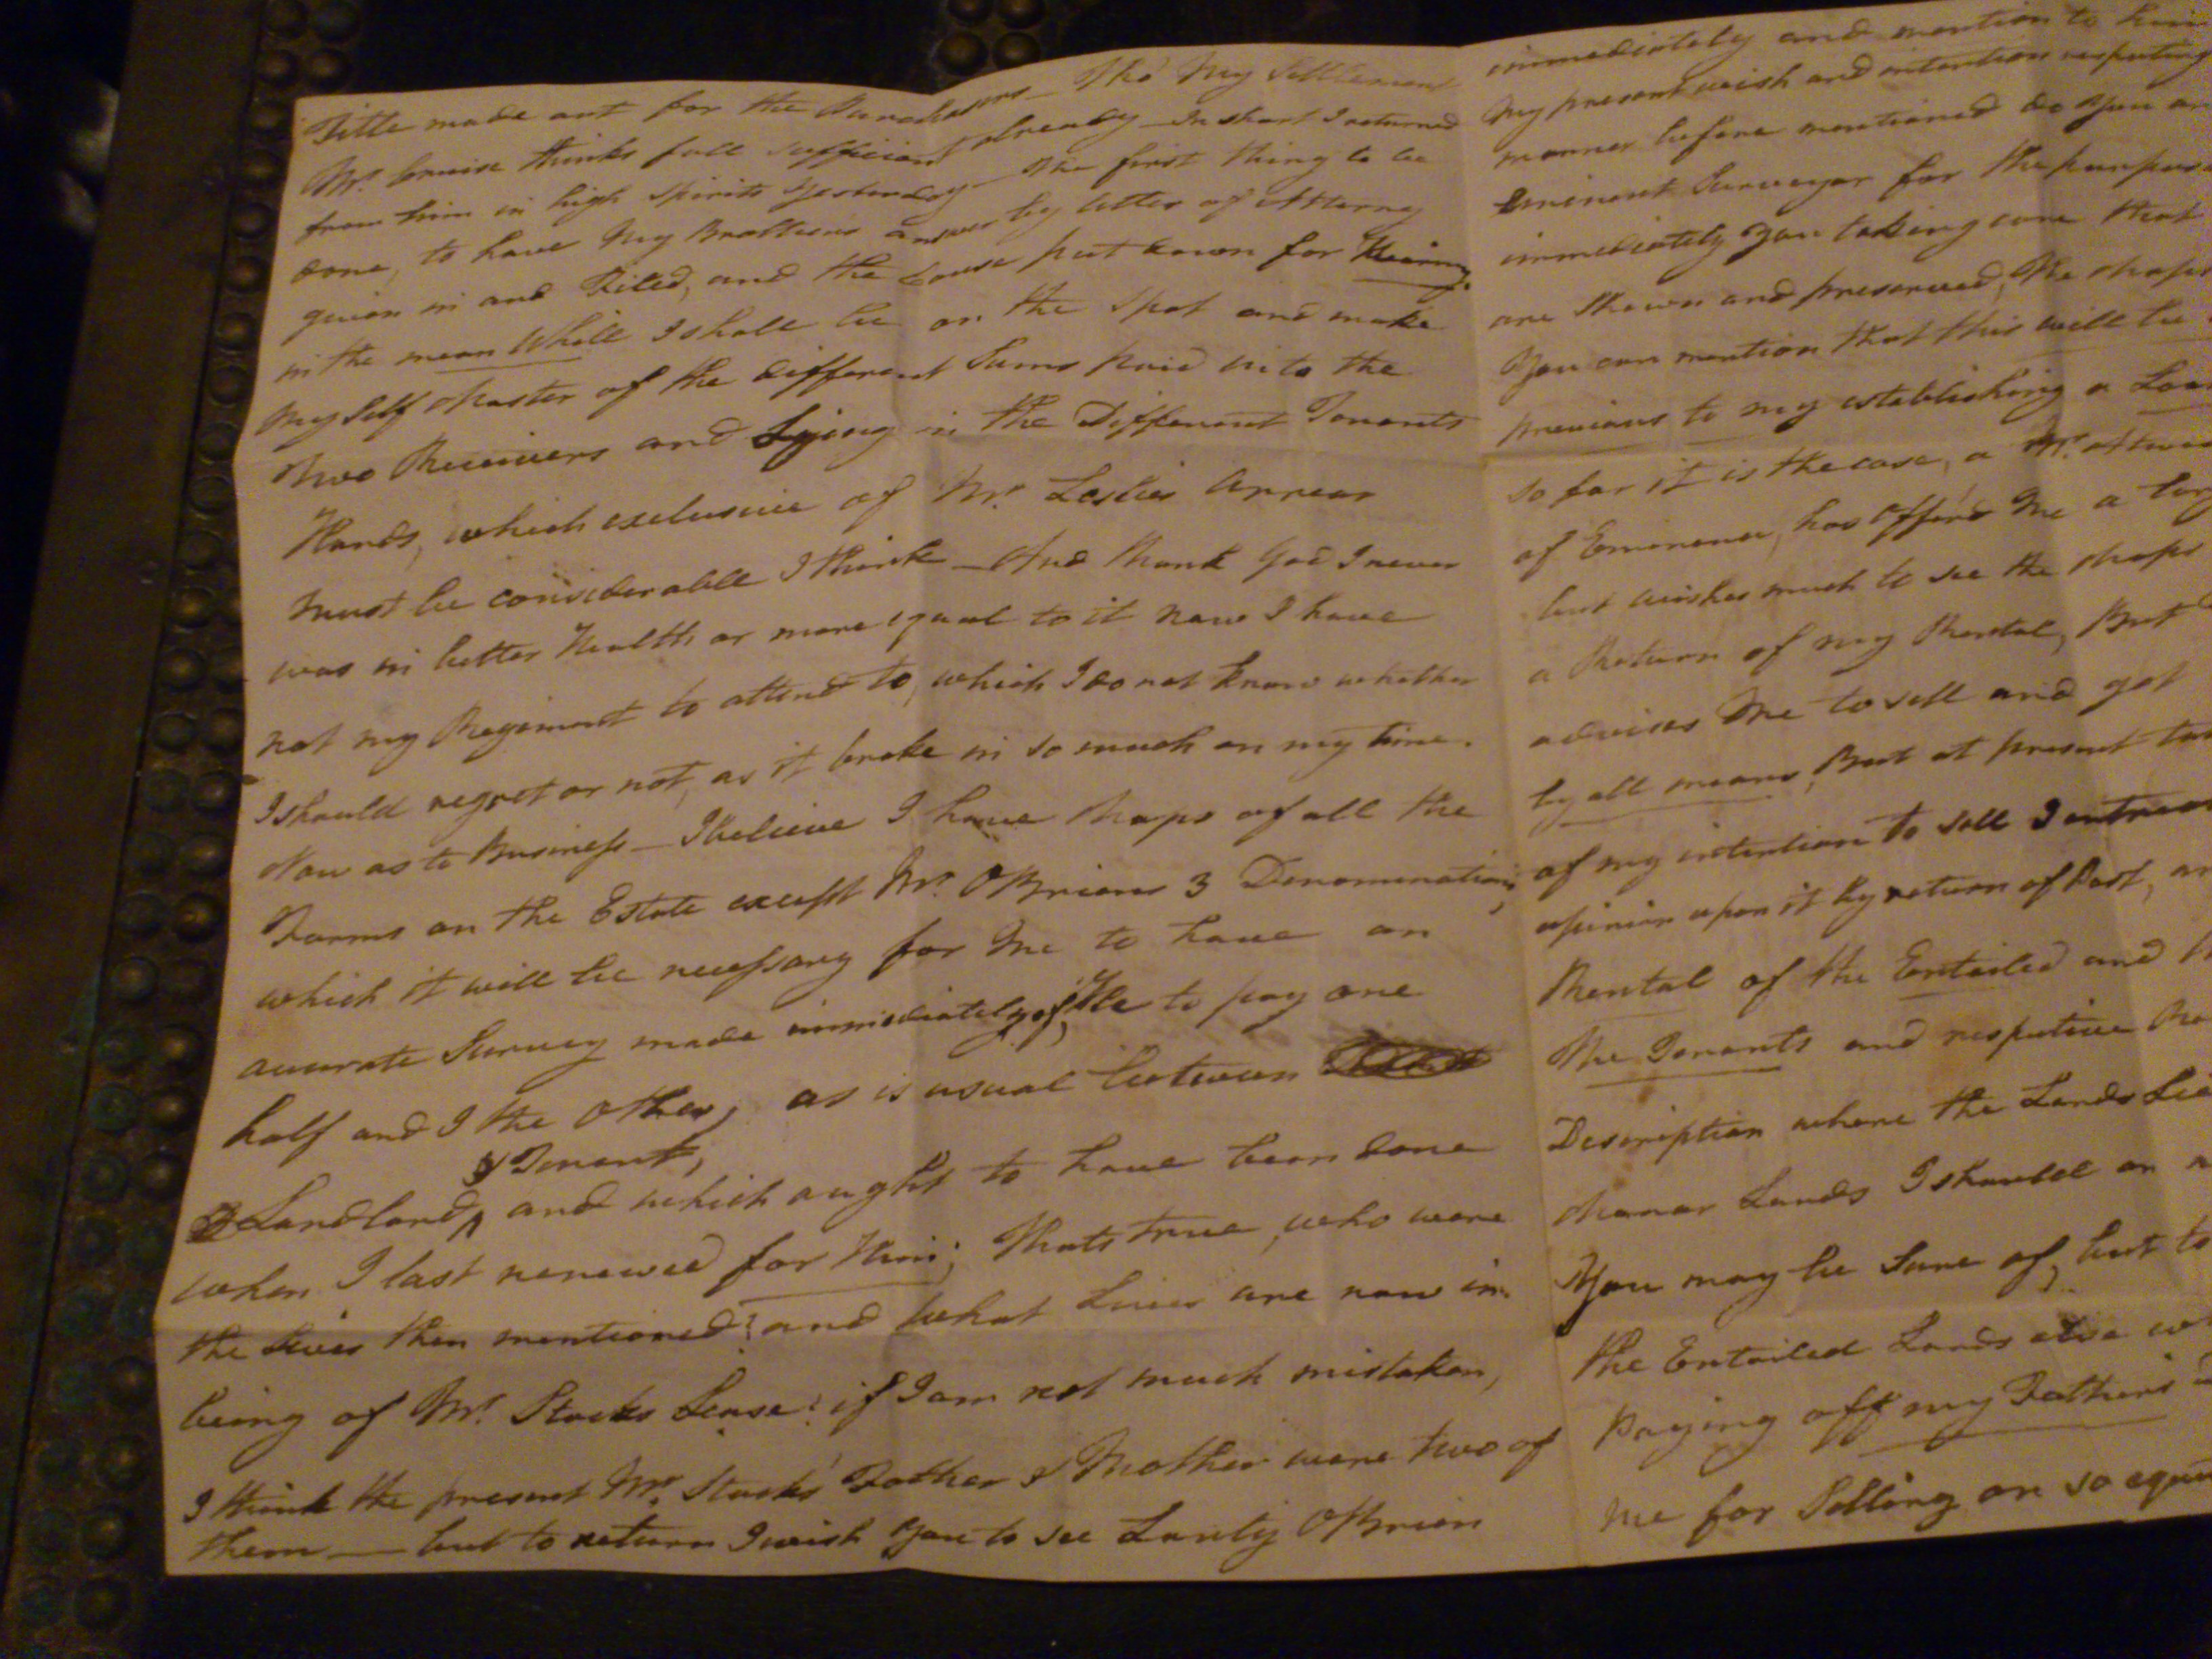 Title made out for the Purchasers — Tho' My Settlement
Mr. Cruise thinks full sufficient already — In short I returned
from him in high Spirits Yesterday — The first thing to be
done, to have My Brothers answer by letter of Attorney
given in and Filed, and the Cause put down for Hearing.
in the mean While I shall be on the Spot and make
My Self Master of the different Sums paid into the
two Receivers and Lying in the Different Tenants
Hands, which exclusive of Mr. Leslies Arrear
must be considerable I think — And thank God I never
was in better Health or more equal to it now I have
not my Regiment to attend to, which I do not know whether
I should regret or not, as it broke in so much on my time.
Now as to Business — I believe I have Maps of all the
Farms on the Estate except Mr. OBriens 3 Denominations,
which it will be necessary for Me to have an
accurate Survey made immediately of, He to pay one
half and I the Other, as is usual between
Landlord & Tenant, and which ought to have been done
when I last renewed for Him; Thats true, who were
the Lives then mentioned? and what Lives are now in
being of Mr. Stacks Lease? if I am not much mistaken,
I think the present Mr. Stacks' Father & Mother were two of
them — but to return I wish You to see Lanty OBrien
immediately and mention to him
My present wish and intention respecting
manner before mentioned do You
Eminent Surveyor for the purpose
immediately You taking care that
are Shewn and preserved, The Maps
You can mention that this will be
previous to my establishing a
so far it is the case, a Mr.
of Eminence, has Offerd Me a
but wishes much to see the Maps
a Return of my Rental, But
advises Me to sell and get
by all means, But at present
of my intention to sell I entreat
opinion upon it by return of Post,
Rental of the Entailed and
The Tenants and respective
Description where the Lands
Manor Lands I should on
You may be Sure of, but to
the Entailed Lands else
Paying off my Fathers
me for Selling on so